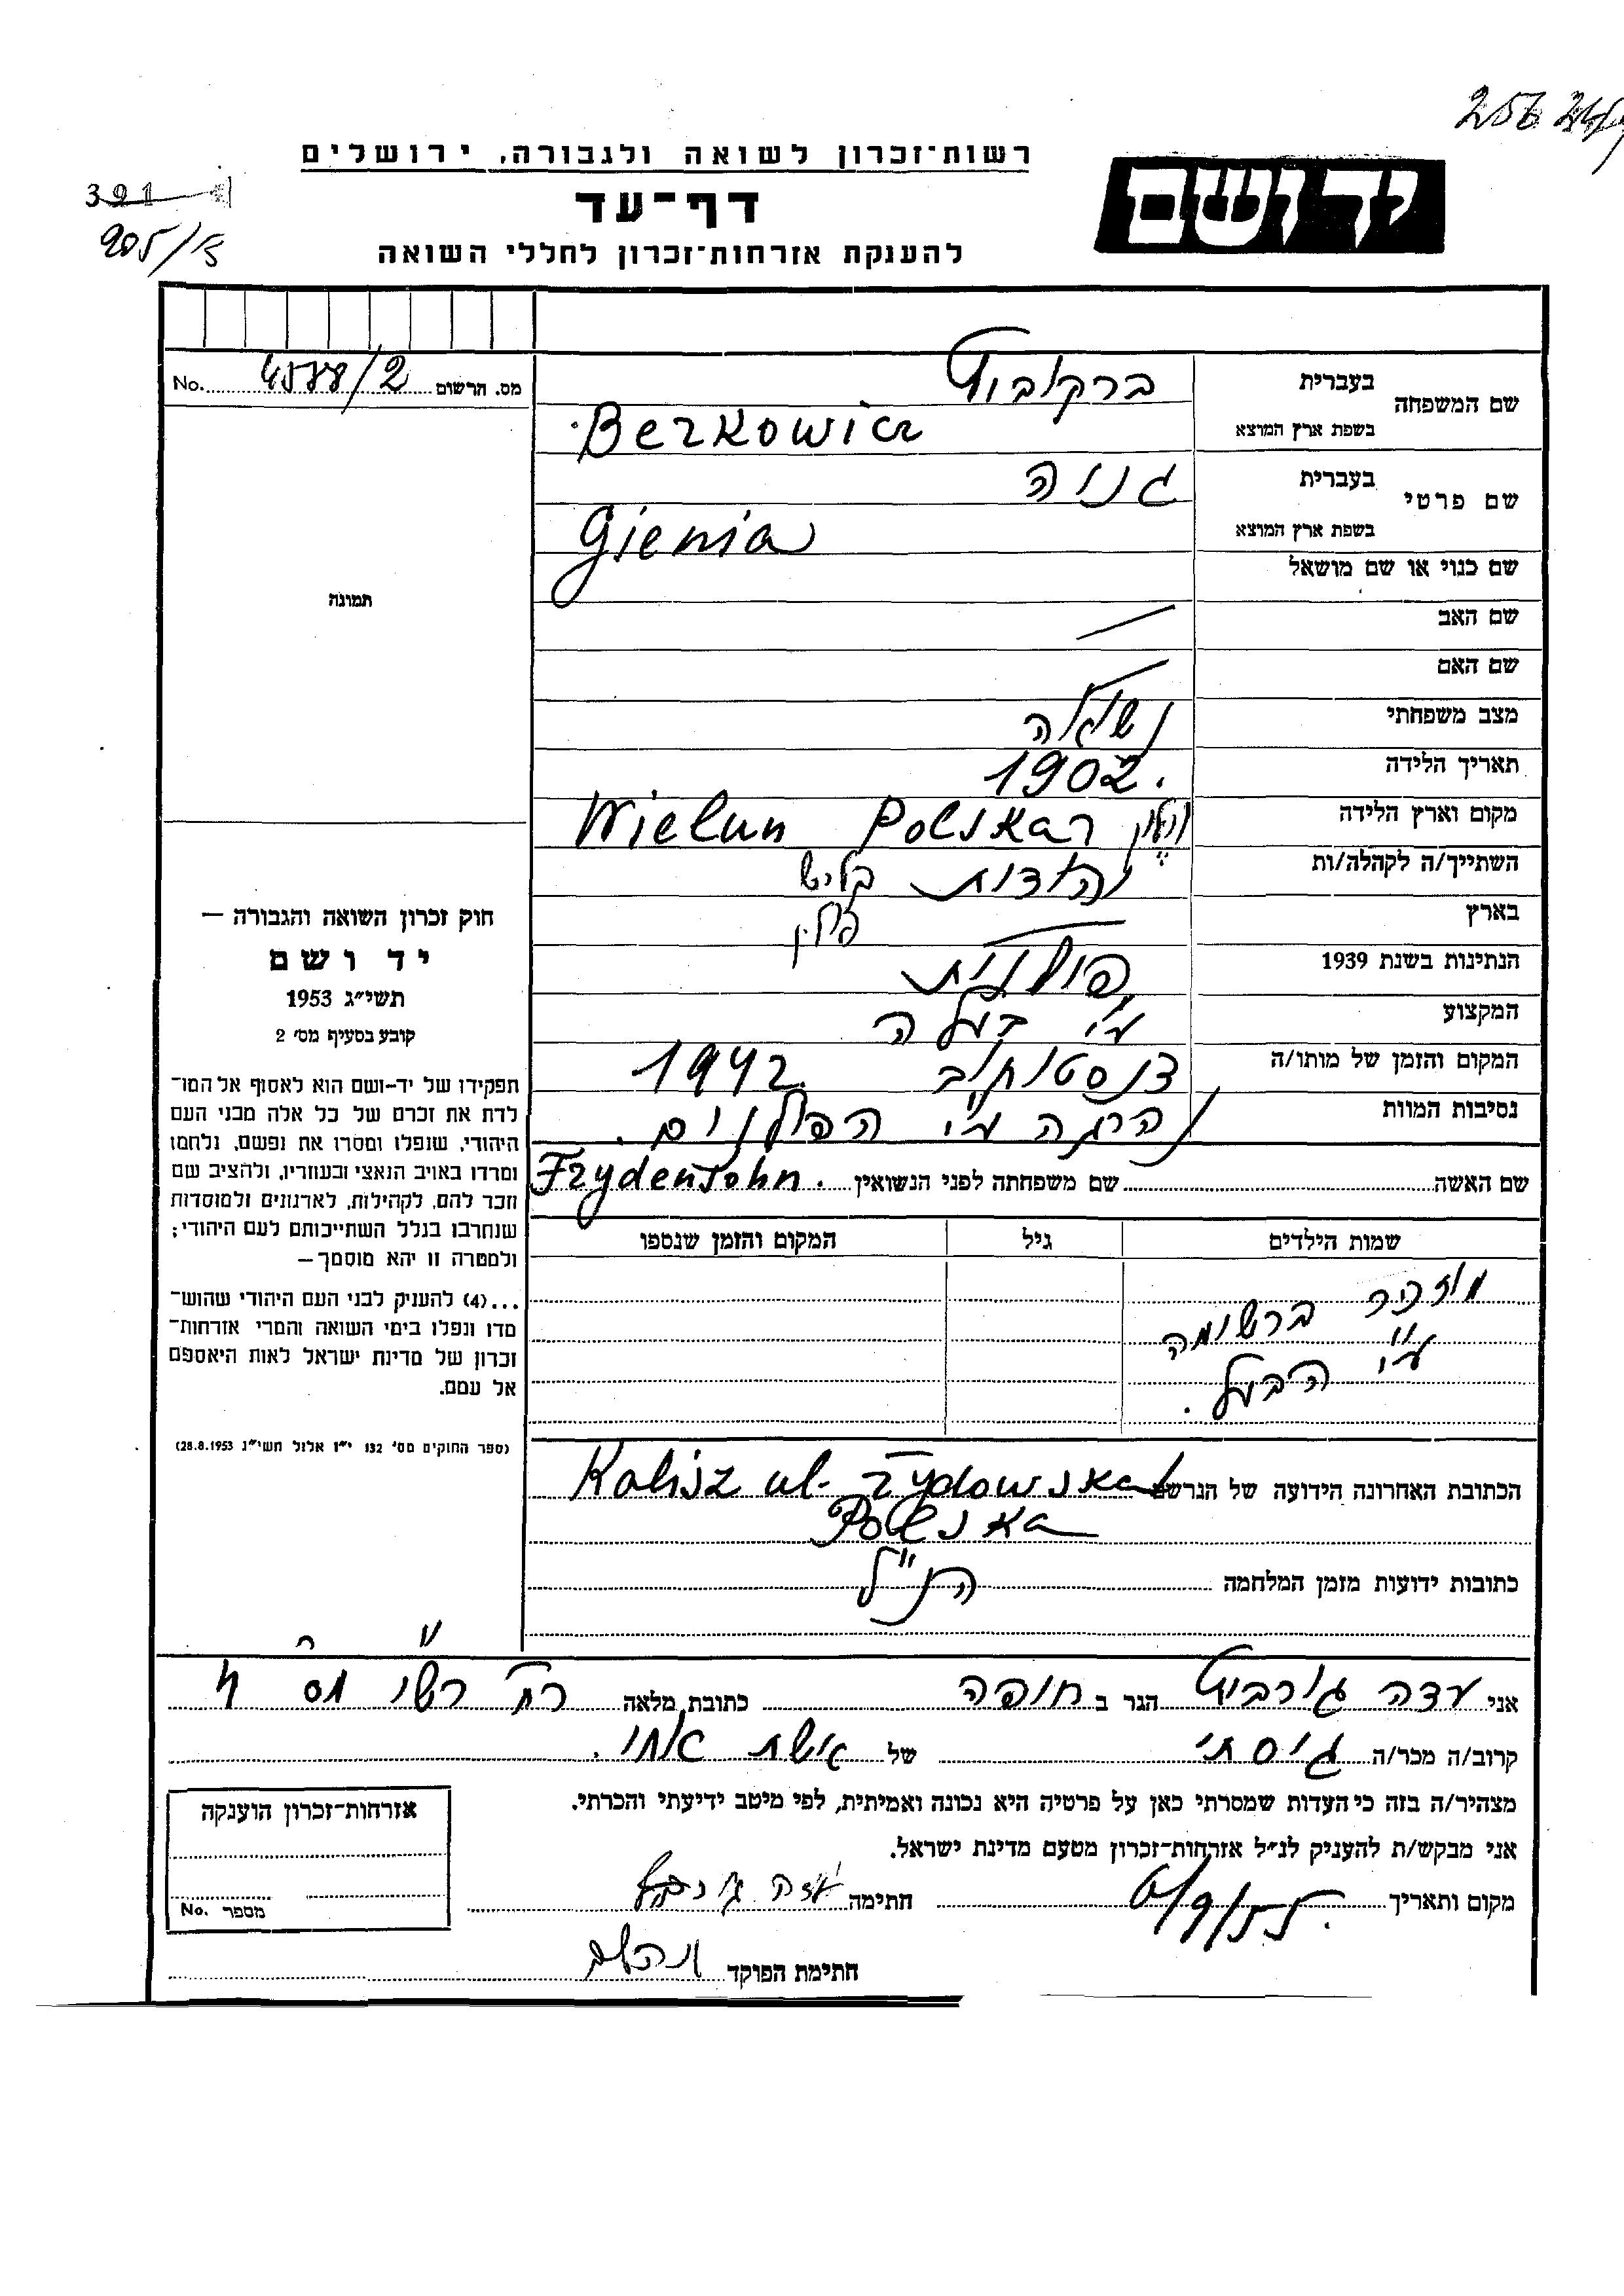 רשות־זכרון לשואה ולגבורה, ירושלים
ידושם
391
דף־עד
להענקת אזרחות־זכרון לחללי השואה
מס. הרשום 4578/2 No.
שם המשפחה בעברית ברקוביץ
בשפת ארץ המוצא Berkowicz
שם פרטי בעברית גניה
בשפת ארץ המוצא Gienia
שם כנוי או שם מושאל
תמונה
שם האב
שם האם
מצב משפחתי נשואה
תאריך הלידה 1902.
מקום וארץ הלידה וילון Wielun Polska
השתייך/ה לקהלה/ות יהדות קליש
בארץ פולין
הנתינות בשנת 1939 פולנית
המקצוע ע"י בעלה
המקום והזמן של מותו/ה צנסטוחוב 1942
נסיבות המוות נהרגה ע"י הפולנים.
שם האשה שם משפחתה לפני הנשואין Frydensohn.
שמות הילדים גיל המקום והזמן שנספו
מוזכר ברשומה
ע"י הבעל.
חוק זכרון השואה והגבורה —
יד ושם
תשי״ג 1953
קובע בסעיף מס׳ 2
תפקידו של יד-ושם הוא לאסוף אל המו־
לדת את זכרם של כל אלה מבני העם
היהודי, שנפלו ומסרו את נפשם, נלחמו
ומרדו באויב הנאצי ובעוזריו, ולהציב שם
וזכר להם, לקהילות, לארגונים ולמוסדות
שנחרבו בגלל השתייכותם לעם היהודי;
ולמטרה זו יהא מוסמך—
...(4) להעניק לבני העם היהודי שהוש־
מדו ונפלו בימי השואה והמרי אזרחות־
זכרון של מדינת ישראל לאות היאספם
אל עמם.
(ספר החוקים מס׳ 132 י״ז אלול תשי״ג 28.8.1953)
הכתובת האחרונה הידועה של הנרשם Kalisz ul. Żydowska
Polska
כתובות ידועות מזמן המלחמה הנ"ל
אני עדה גורביץ הגר ב חיפה כתובת מלאה רח' רשי מס 4
קרוב/ה מכר/ה גיסתי של אישת אחי.
מצהיר/ה בזה כי העדות שמסרתי כאן על פרטיה היא נכונה ואמיתית, לפי מיטב ידיעתי והכרתי.
אני מבקש/ת להעניק לנ״ל אזרחות־זכרון מטעם מדינת ישראל.
מקום ותאריך חתימה
חתימת הפוקד
אזרחות־זכרון הוענקה
מספר No.